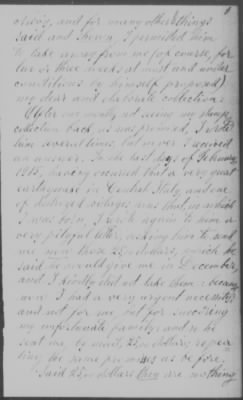 and for many other things
said and shown, I permitted him
to take away from me for course, for
two or three weeks at most and under
conditions by himself proposed
my dear and elaborate collection.
After one month, not seeing my stamp
collection back as was promised, I wrote
him several times, but never I received
an answer. In the last days of February
1915, having occured that a very great
earthquake in Central Italy and one
of destroyed villages was that in which
I was born, I wrote again to him a
very pitiful letter, asking him to send
me now those 25,00 dollars, which he
said he would give me in December
and I kindly did not take them, because
now I had a very urgent necessity
and not for me but for succoring
my unfortunate family; and so he
sent me, by mail, 25,00 dollars, repea-
ting the same promises as before.
Said 25,00 dollars they are nothing